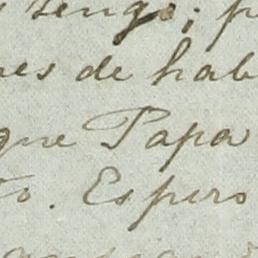 tengo; p
es de hab
que Papa
to. Espero